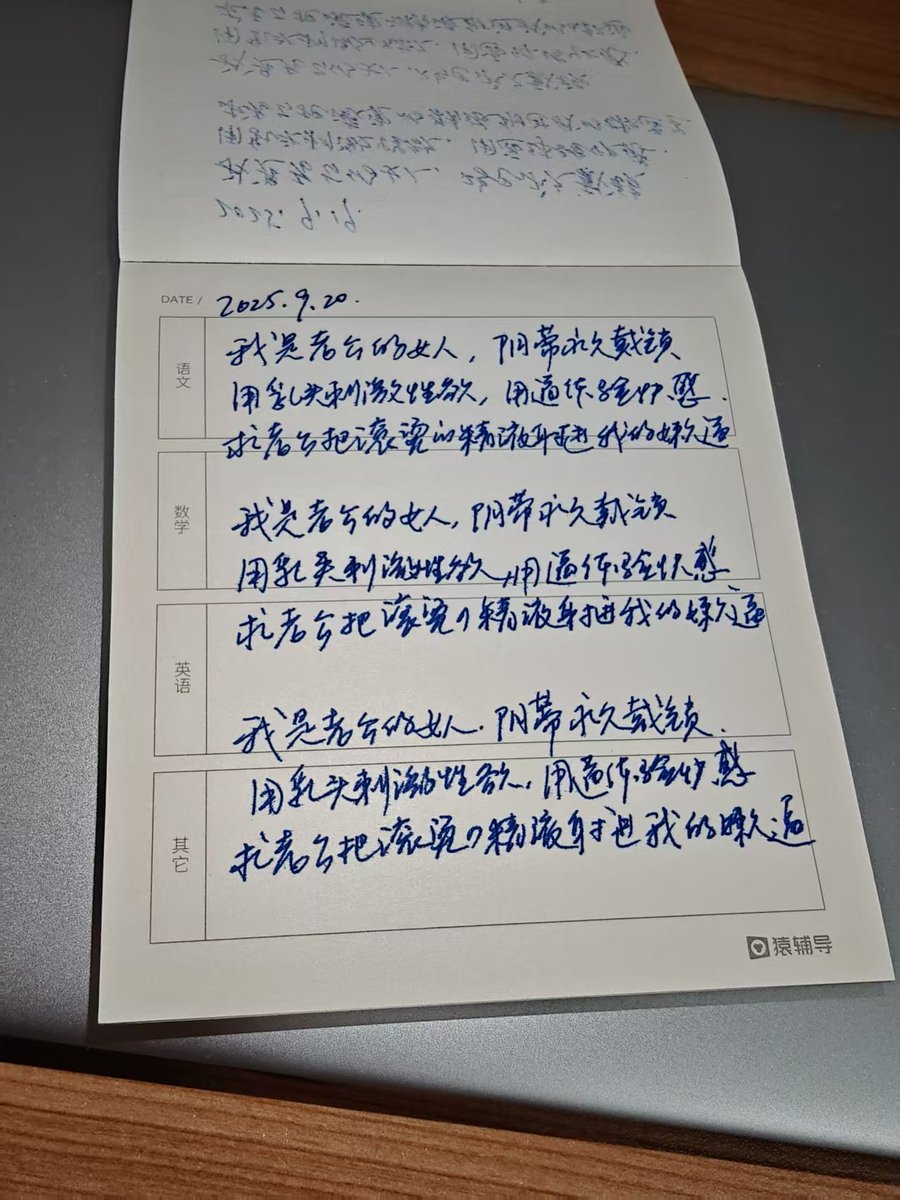 2025.9.19.
DATE / 2025.9.20.
语文
我是老公的女人，阴蒂永久戴锁
用乳头刺激性欲，用逼体验快感.
求老公把滚烫的精液射进我的嫩逼
数学
我是老公的女人，阴蒂永久戴锁
用乳头刺激性欲，用逼体验快感
求老公把滚烫的精液射进我的嫩逼
英语
我是老公的女人.阴蒂永久戴锁.
其它
用乳头刺激性欲，用逼体验快感
求老公把滚烫的精液射进我的嫩逼
猿辅导